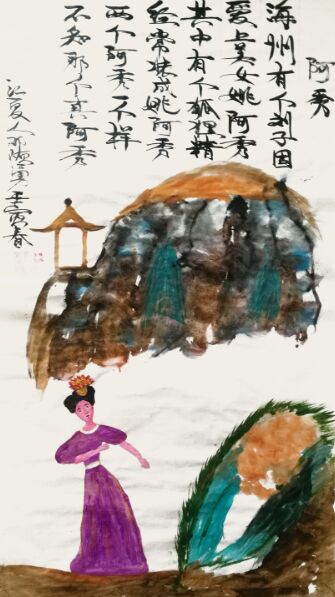 阿秀
海州有个刘子因
爱上美女姚阿秀
其中有个狐狸精
经常装成姚阿秀
两个阿秀一个样
不知那个真阿秀
江夏人
壬寅春